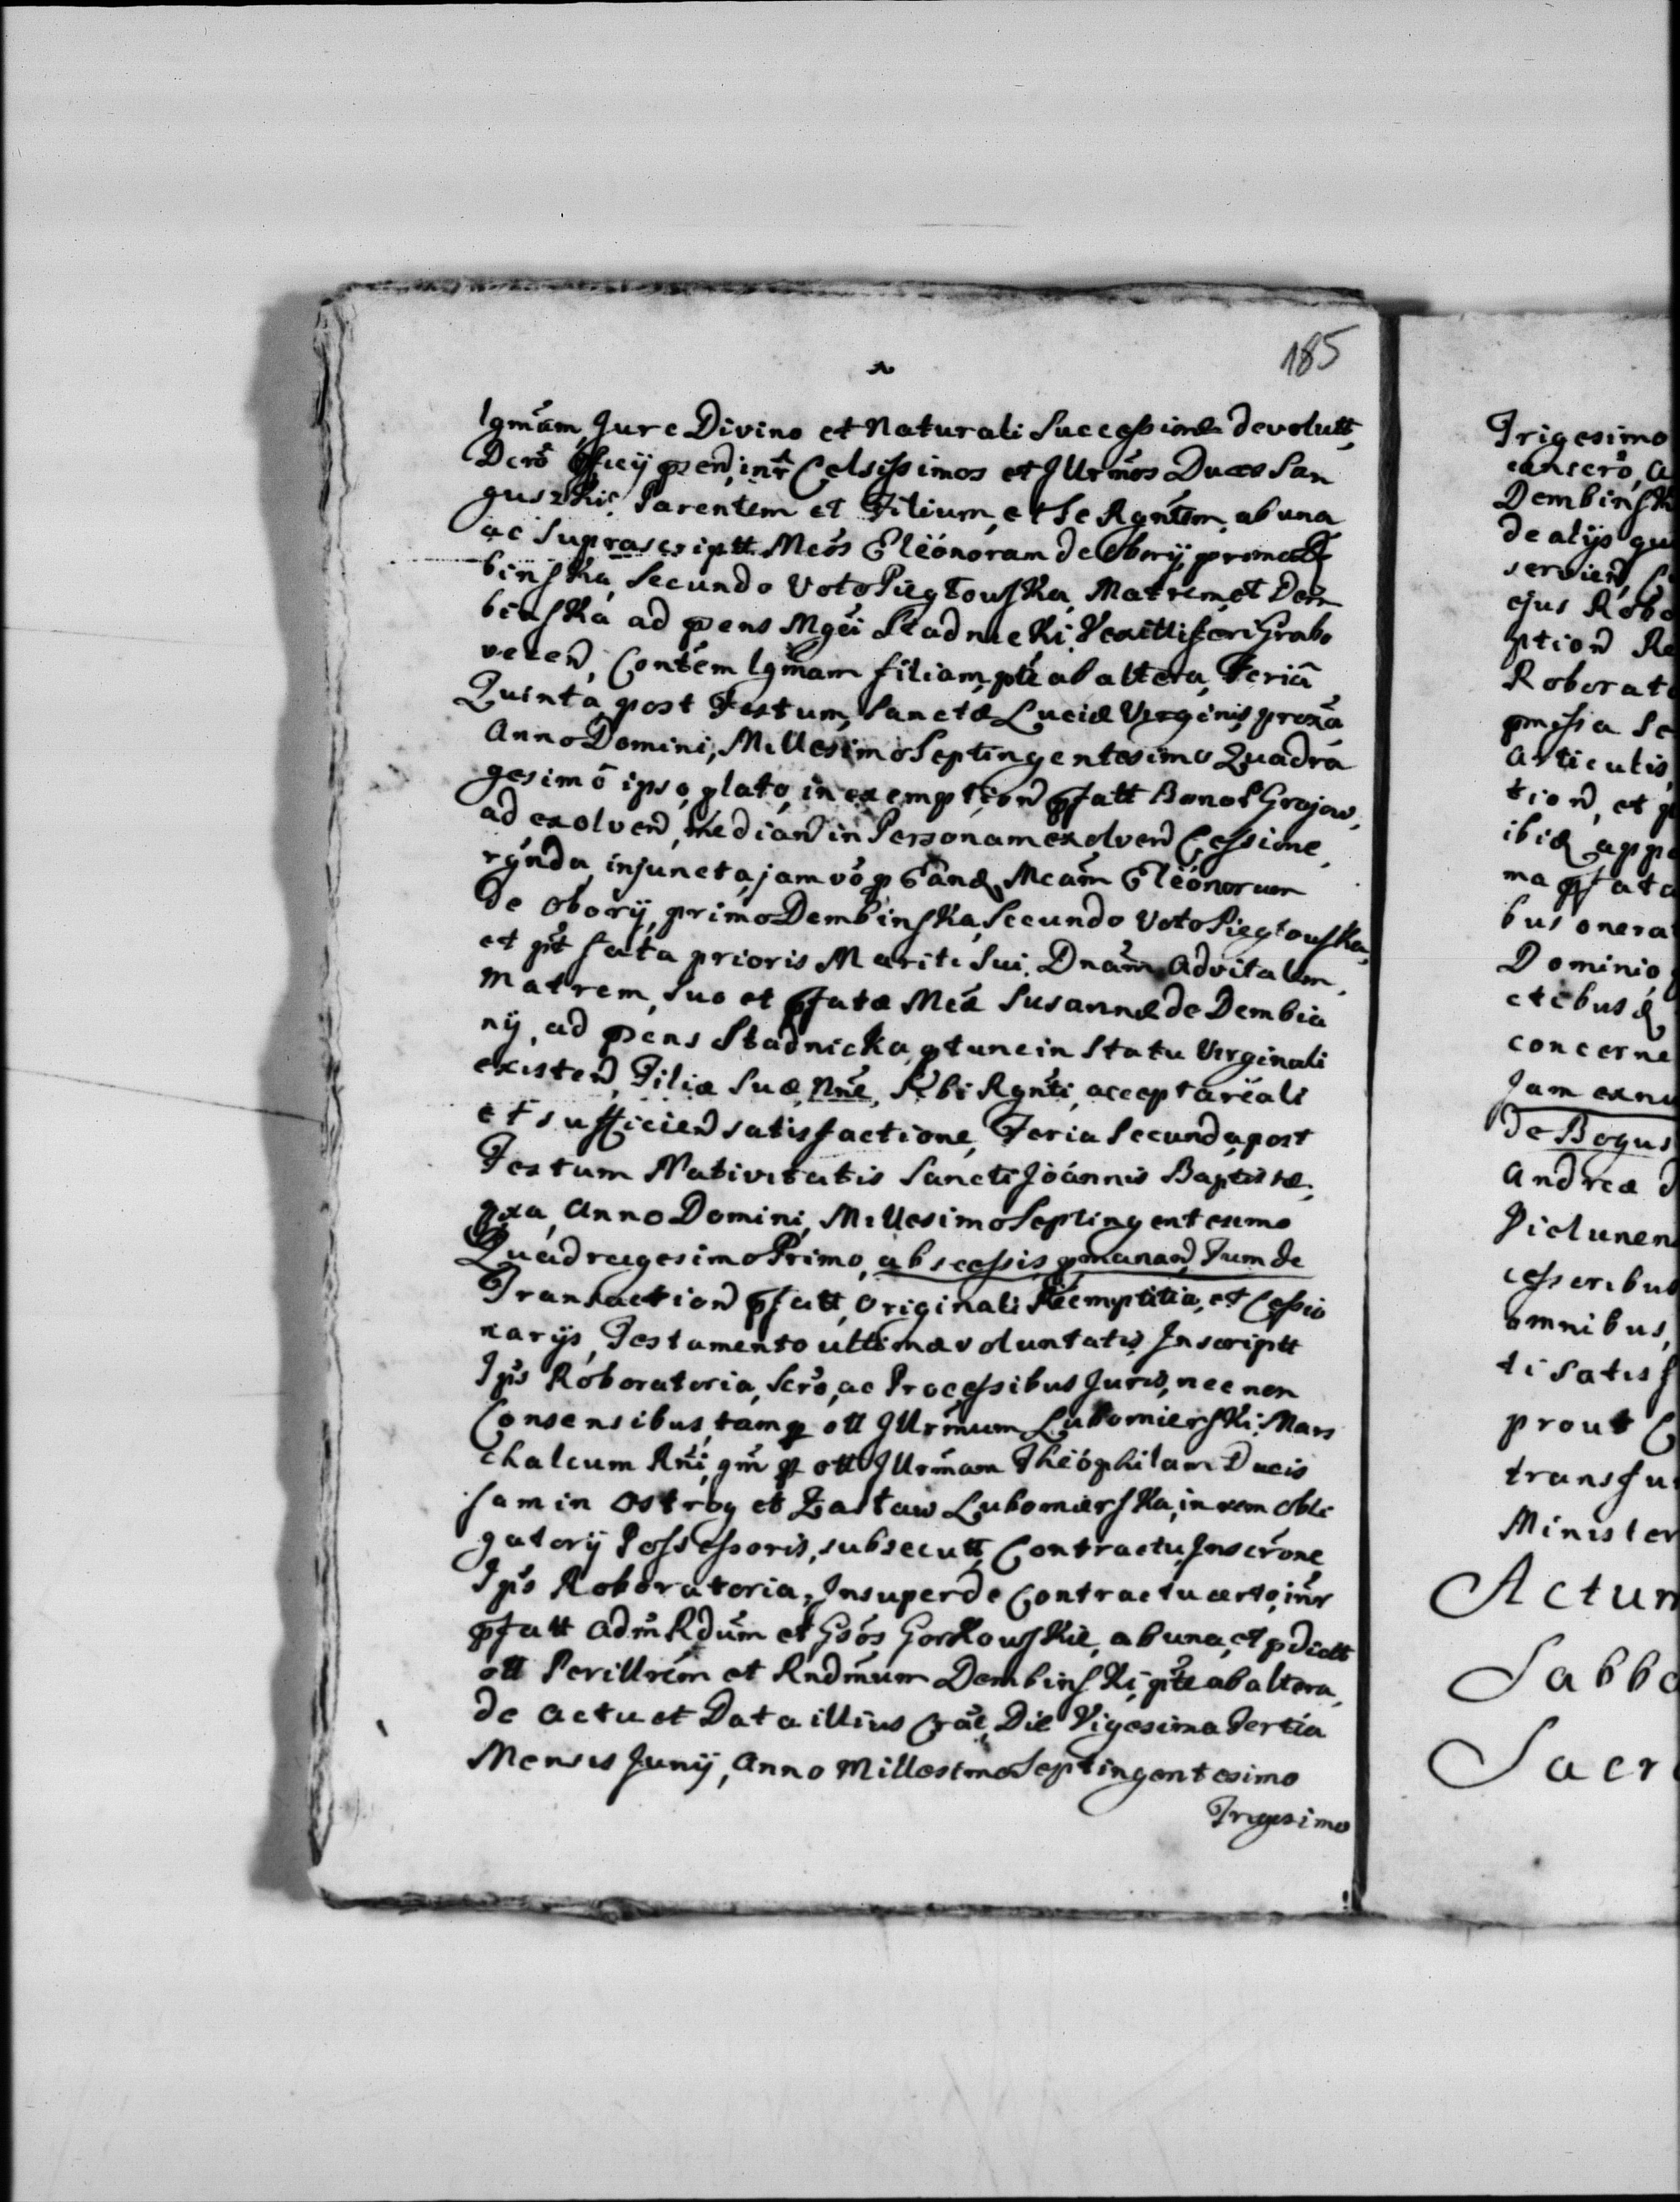 185
lgmam, Jure Divino et Naturali Successione devolutt,
Dcro Officij pen, intr Celsissimos et Illrmos Duces San
guszkie, Parentem et Filium, et se Rgntem, ab una
ac suprascriptt Mcos Eleonoram de Obory, primo De
binska, Secundo Voto Piegłouska, Matrem, et Dem
binska ad pens Mgci Stadnicki Vexilliferi Grabo
vecen, Contem lgmam filiam, pte ab altera, Feria
Quinta, post Festum, Sanctæ Luciæ Virginis, proxa
Anno Domini, Millesimo Septingentesimo Quadra
gesimo ipso, plato, in exemption pfatt Bonor Grojow,
ad exolven, median in Personam exolven Cessione,
rynda, injuncta, jam vo p eand, Mcam Eleonoram
de Obory, primo Dembinska, Secundo Voto Piegłouska,
et pt fata prioris Mariti Sui, Dnam Advitalem,
Matrem, suo et pfatæ Mcæ Susannæ de Dembia
ny, ad pens Stadnicka, ptunc in Statu Virginali
existen, Filiæ Suæ, Nne, Sibi Rgnti, accepta reali
et sufficien satisfactione, Feria Secunda, post
Festum Nativitatis Sancti Joannis Baptistæ,
pxa, Anno Domini, Millesimo Septingentesimo
Quadragesimo Primo, abscessis pmanan, Tum de
Transaction pfatt, Originali Reemptitia, et Cessio
narijs, Testamento ultimæ voluntatis, Inscriptt
Ipis Roboratoria, Scro, ac Processibus Juris, nec non
Consensibus, tam p ott Illrmum Lubomierski Mars
chalcum Rni, qm p ott Illrmam Theophilam Ducis
sam in Ostrog et Zasław Lubomierska, in rem obli
gatorij Possessoris, subsecutt, Contractu, Inscrone
Ipis Roboratoria, Insuper de Contractu certo, intr
pfatt Adm Rdum et Gsos Gorkouskie, ab una, et pdictt
ott Perillrem et Rndmum Dembinski, pte ab altera,
de actu et Data illius Crac, Die Vigesima Tertia
Mensis Junij, Anno Millesimo Septingentesimo
Trigesimo
Trigesimo
Dembinsk
de alijs qu
servien,
ejus Robo
ption Re
Roborato
pmissa Se
Articulis
tion, et p
ibid, appa
ma pfata
bus onera
Dominio
ctibus
concerne
Jam exnu
de Bogus
Andreæ d
Pictunen
cessoribus
omnibus,
ti satisf
prout C
transfu
Minister
Actum
Sabba
Sacr